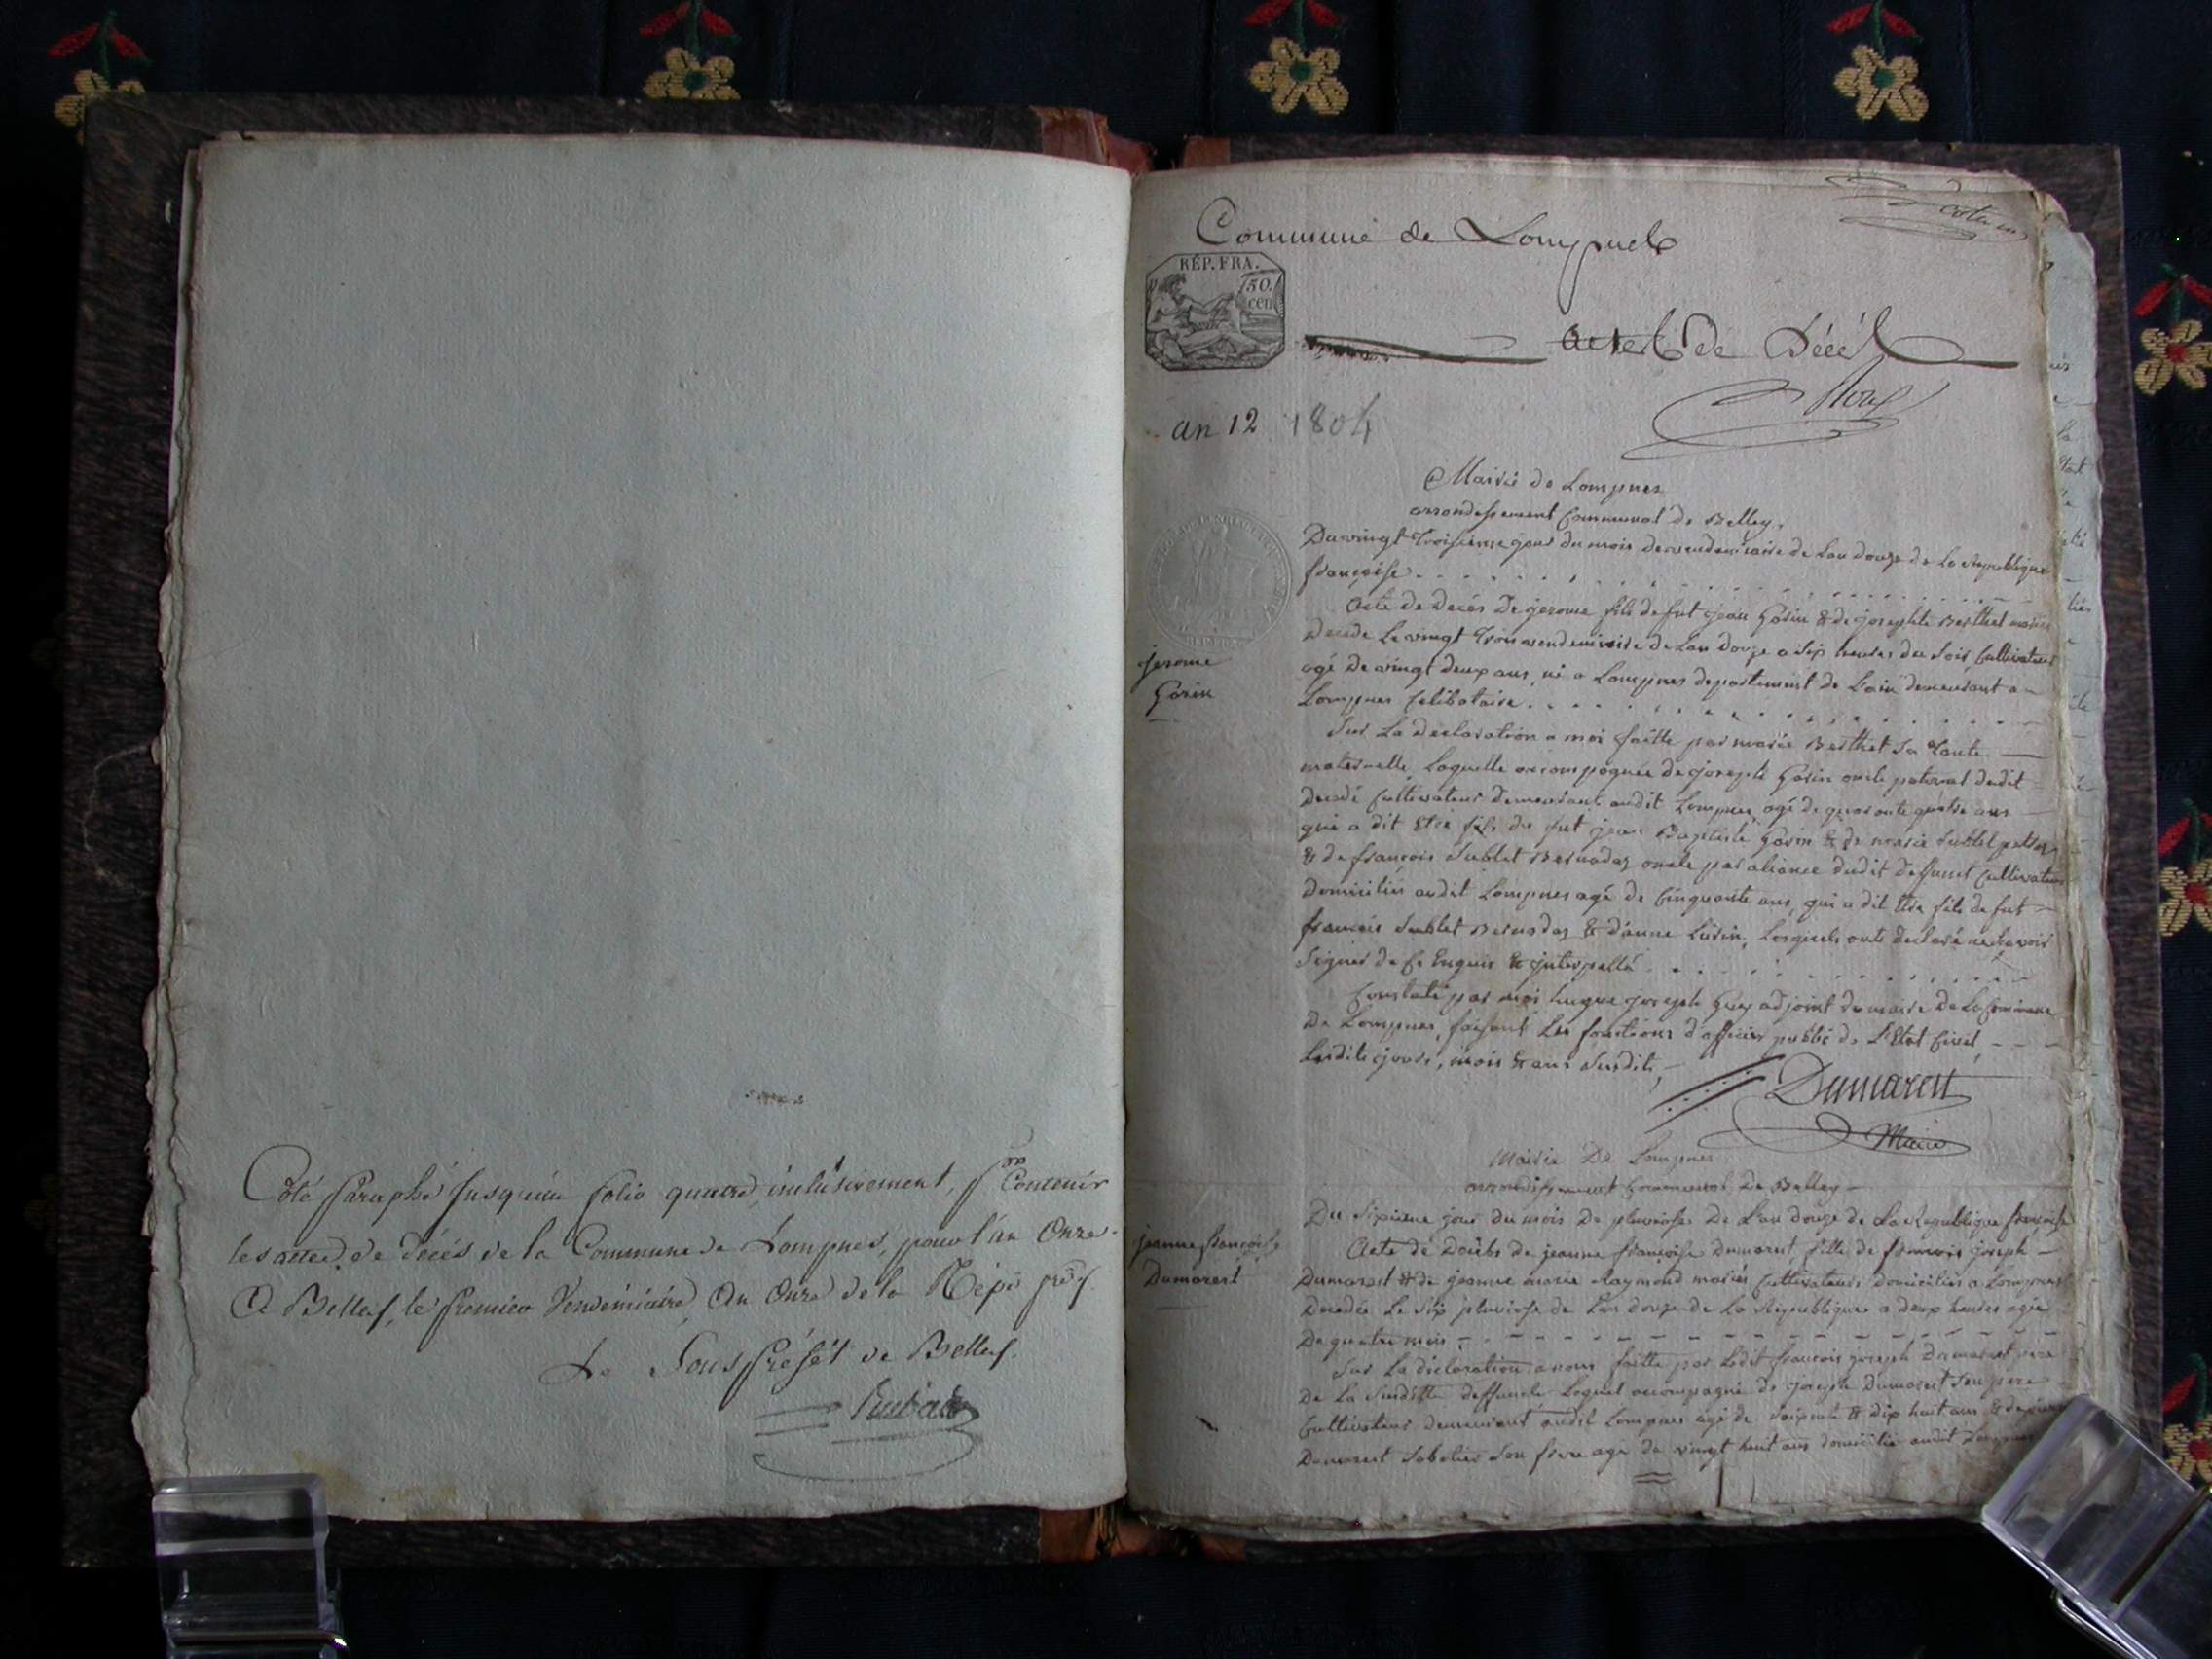 Coté Paraphé jusquau folio quatre, inclusivement, pr Contenir
les actes de décès de la Commune de Lompnes, pour l'an Onze.
A Belley, le Premier Vendémiaire, An Onze de la Rép.
Le Sous Préfêt de Belley.
Commune de Lompnes
RÉP. FRA.
50.
cen
Actes de Décès
an 12 1804
Mairie de Lompnes
arrondissement Communal de Belley.
Du vingt troisieme jour du mois de vendemiaire de Lan douze de La Republique
françoise
Jerome
Gorin
Acte de Decès De jerome fils de fut jean Gorin & de josephte Berthet mariés
Decede Le vingt trois vendemiaire de Lan douze a six heures du soir Cultivateur
agé De vingt deux ans, né a Lompnes departement de L'ain demeurant a
Lompnes Celibataire.
Sur La declaration a moi faitte par marie Berthet sa tante
maternelle, Laquelle accompagnée de joseph Gorin oncle paternel dudit
Decedé Cultivateur demeurant audit Lompnes, agé de quarante quatre ans
qui a dit Etre fils de fut jean Baptiste Gorin & de marie Sublet
& de françois Sublet Bernadaz oncle par aliance dudit deffunct Cultivateur
domicilié audit Lompnes agé de Cinquante ans, qui a dit etre fils de fut
francois Sublet Bernadaz & d'anne Lusin, Lesquels ont declaré ne savoir
Signer de Ce Enquis & interpellé
Constaté par moi hugue joseph Guy adjoint du maire De La Commune
De Lompnes, faisant Les fonctions d'officier public de L'Etat Civil,
Lesdits jours, mois & ans susdits,
Dumarest
Maire
Mairie De Lompnes
arrondissement Communal De Belley
Du Sixieme jour du mois De pluviose De Lan douze de La Republique françoise
jeanne françoise
Dumarest
Acte de Decès de jeanne françoise Dumarest, fille de francois joseph
Dumarest & de jeanne marie Raymond mariés Cultivateurs domiciliés a Lompnes
Decedée Le six pluviose de Lan douze de La Republique a deux heures agée
De quatre mois
Sur La declaration a nous faitte par Ledit francois joseph Dumarest pere
De La susditte deffuncte Lequel accompagné de joseph Dumarest son pere
Cultivateur demeurant audit Lompnes agé de soixante & dix huit ans & de
Dumarest Sabotier son frere agé de vingt huit ans domicilié audit Lompnes